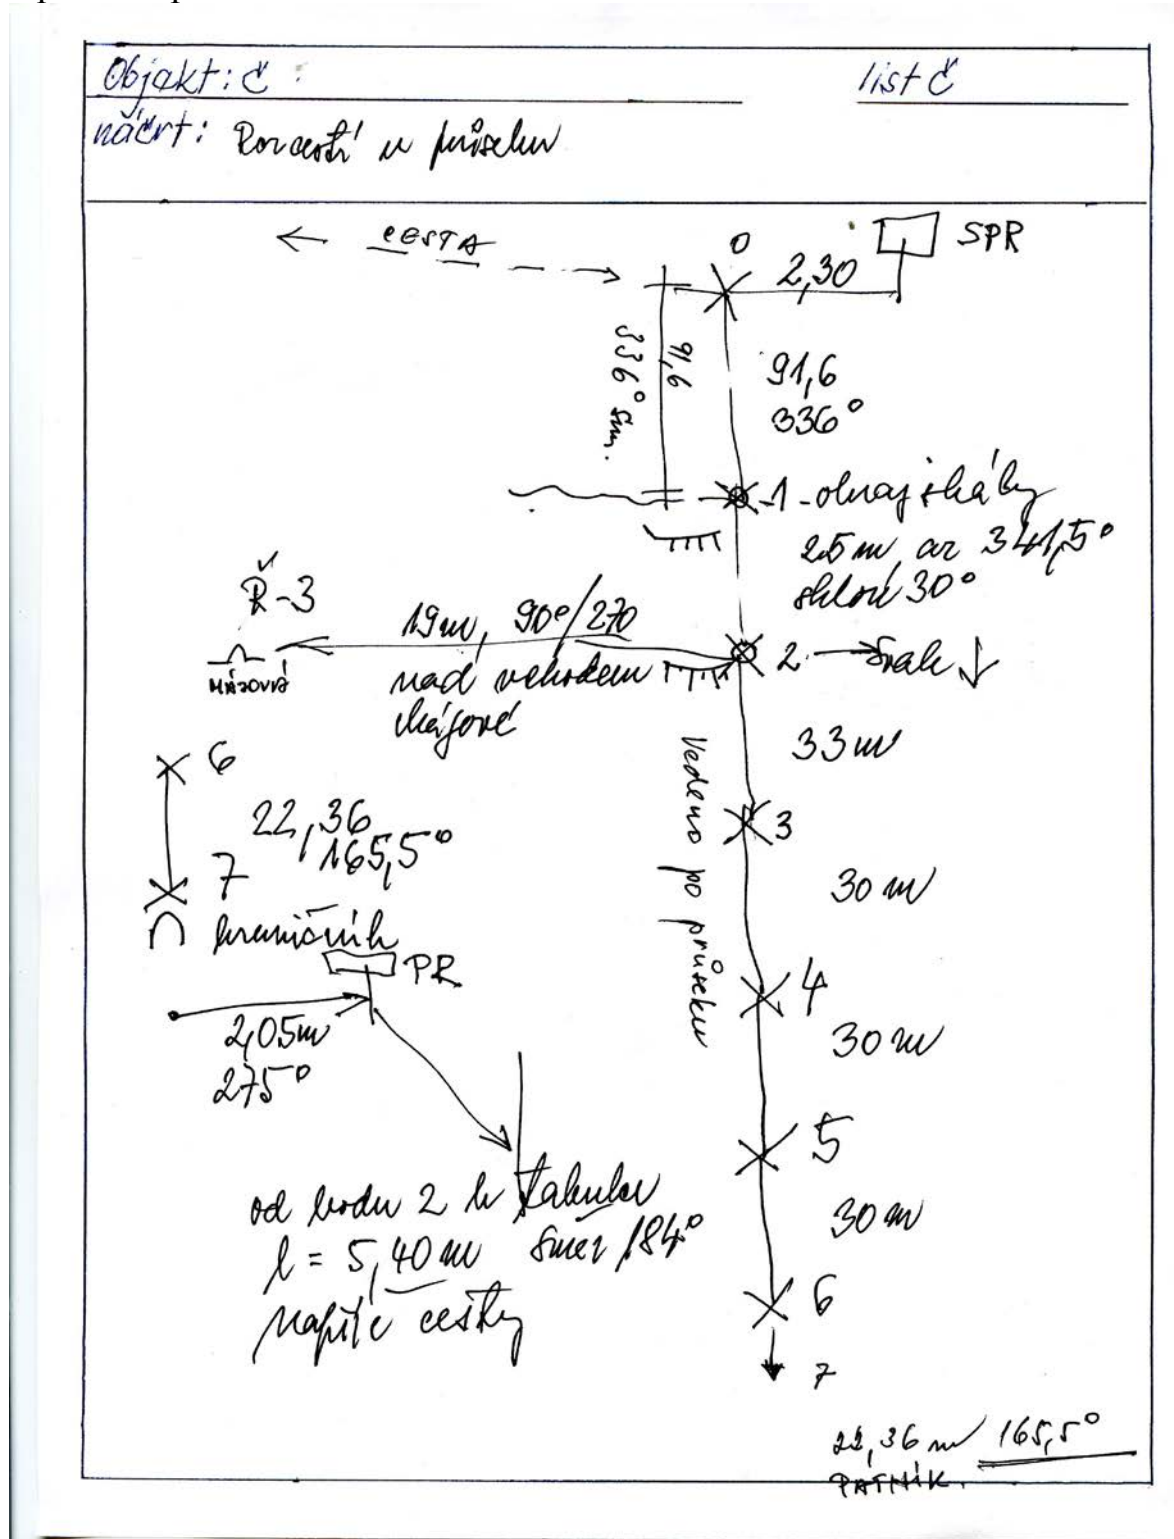 Objekt: č :
list č
náčrt: Rozcestí u průseku
← CESTA
0
SPR
2,30
91,6
336° sm.
91,6
336°
1 - okraj skály
25 m az 341,5°
sklon 30°
Ř-3
MÁZOVÁ
19m, 90°/270
nad vchodem
2 → Svah ↓
33 m
Vedeno po průseku
3
30 m
4
30 m
5
30 m
6
7
6
22,36
165,5°
7
hraničník
PR
2,05m
275°
od bodu 2 k
l = 5,40 m směr 184°
napříč cesty
22,36 m 165,5°
PATNÍK.